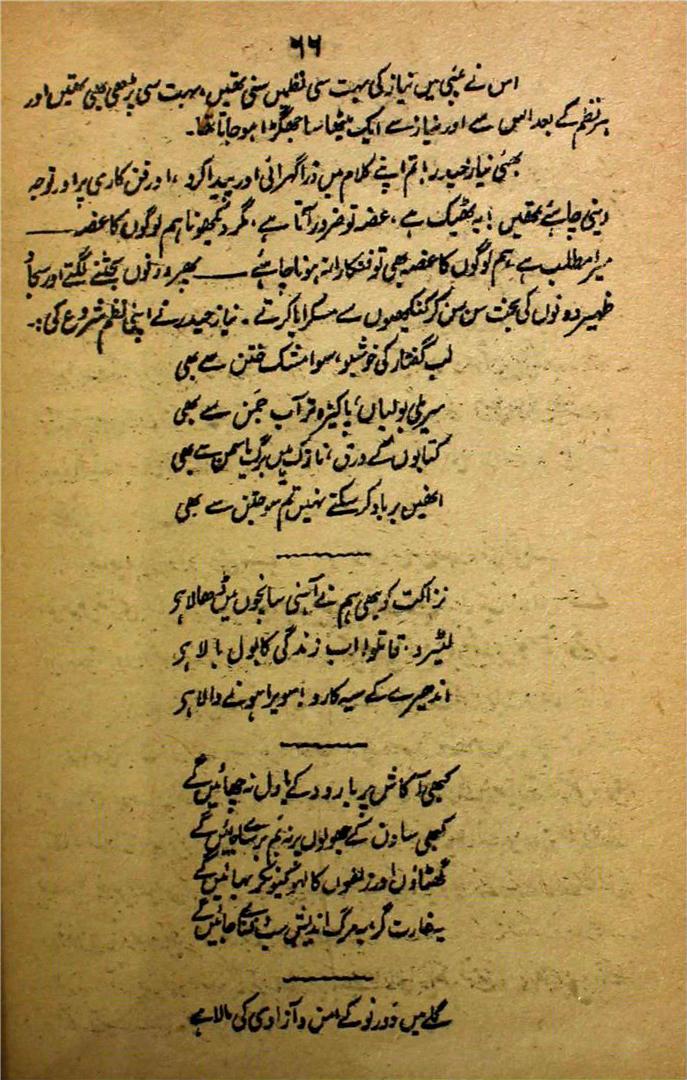 ۶۶
اس نے بمبئی میں نیاز کی بہت سی نظمیں سنی تھیں، بہت سی پڑھی بھی تھیں اور
ہر نظم کے بعد اس سے اور نیاز سے ایک میٹھا سا جھگڑا ہو جاتا تھا۔
بھئی نیاز حیدر! تم اپنے کلام میں ذرا گہرائی اور پیدا کرو، اور فن کاری پر اور توجہ
دینی چاہئے تھیں! یہ ٹھیک ہے، غصہ تو ضرور آتا ہے، مگر دیکھو نا ہم لوگوں کا غصہ ——
میرا مطلب ہے ہم لوگوں کا غصہ بھی تو فنکارانہ ہونا چاہئے —— پھر دونوں بحثنے لگتے اور سجاد
ظہیر دونوں کی بحث سن سن کر کنکھیوں سے مسکرایا کرتے۔ نیاز حیدر نے اپنی نظم شروع کی:۔
لب گفتار کی خوشبو، سوا مشک ختن سے بھی
سریلی بولیاں پاکیزہ تر آب جمن سے بھی
کتابوں کے ورق، نازک ہیں برگ یاسمن سے بھی
انھیں برباد کر سکتے نہیں تم سو جتن سے بھی
نزاکت کو بھی ہم نے آہنی سانچوں میں ڈھالا ہر
لٹیرو، قاتلو! اب زندگی کا بول بالا ہر
اندھیرے کے سیہ کارو! سویرا ہونے والا ہر
کبھی آکاش پر بارود کے بادل نہ چھائیں گے
کبھی ساون کے جھولوں پر نہ بم برسائے جائیں گے
گھٹاؤں اور زلفوں کا لہو کیونکر بہائیں گے
یہ غارت گر، یہ مرگ اندیش سب دفنائے جائیں گے
گلے میں دور نو کے امن و آزادی کی مالا ہے